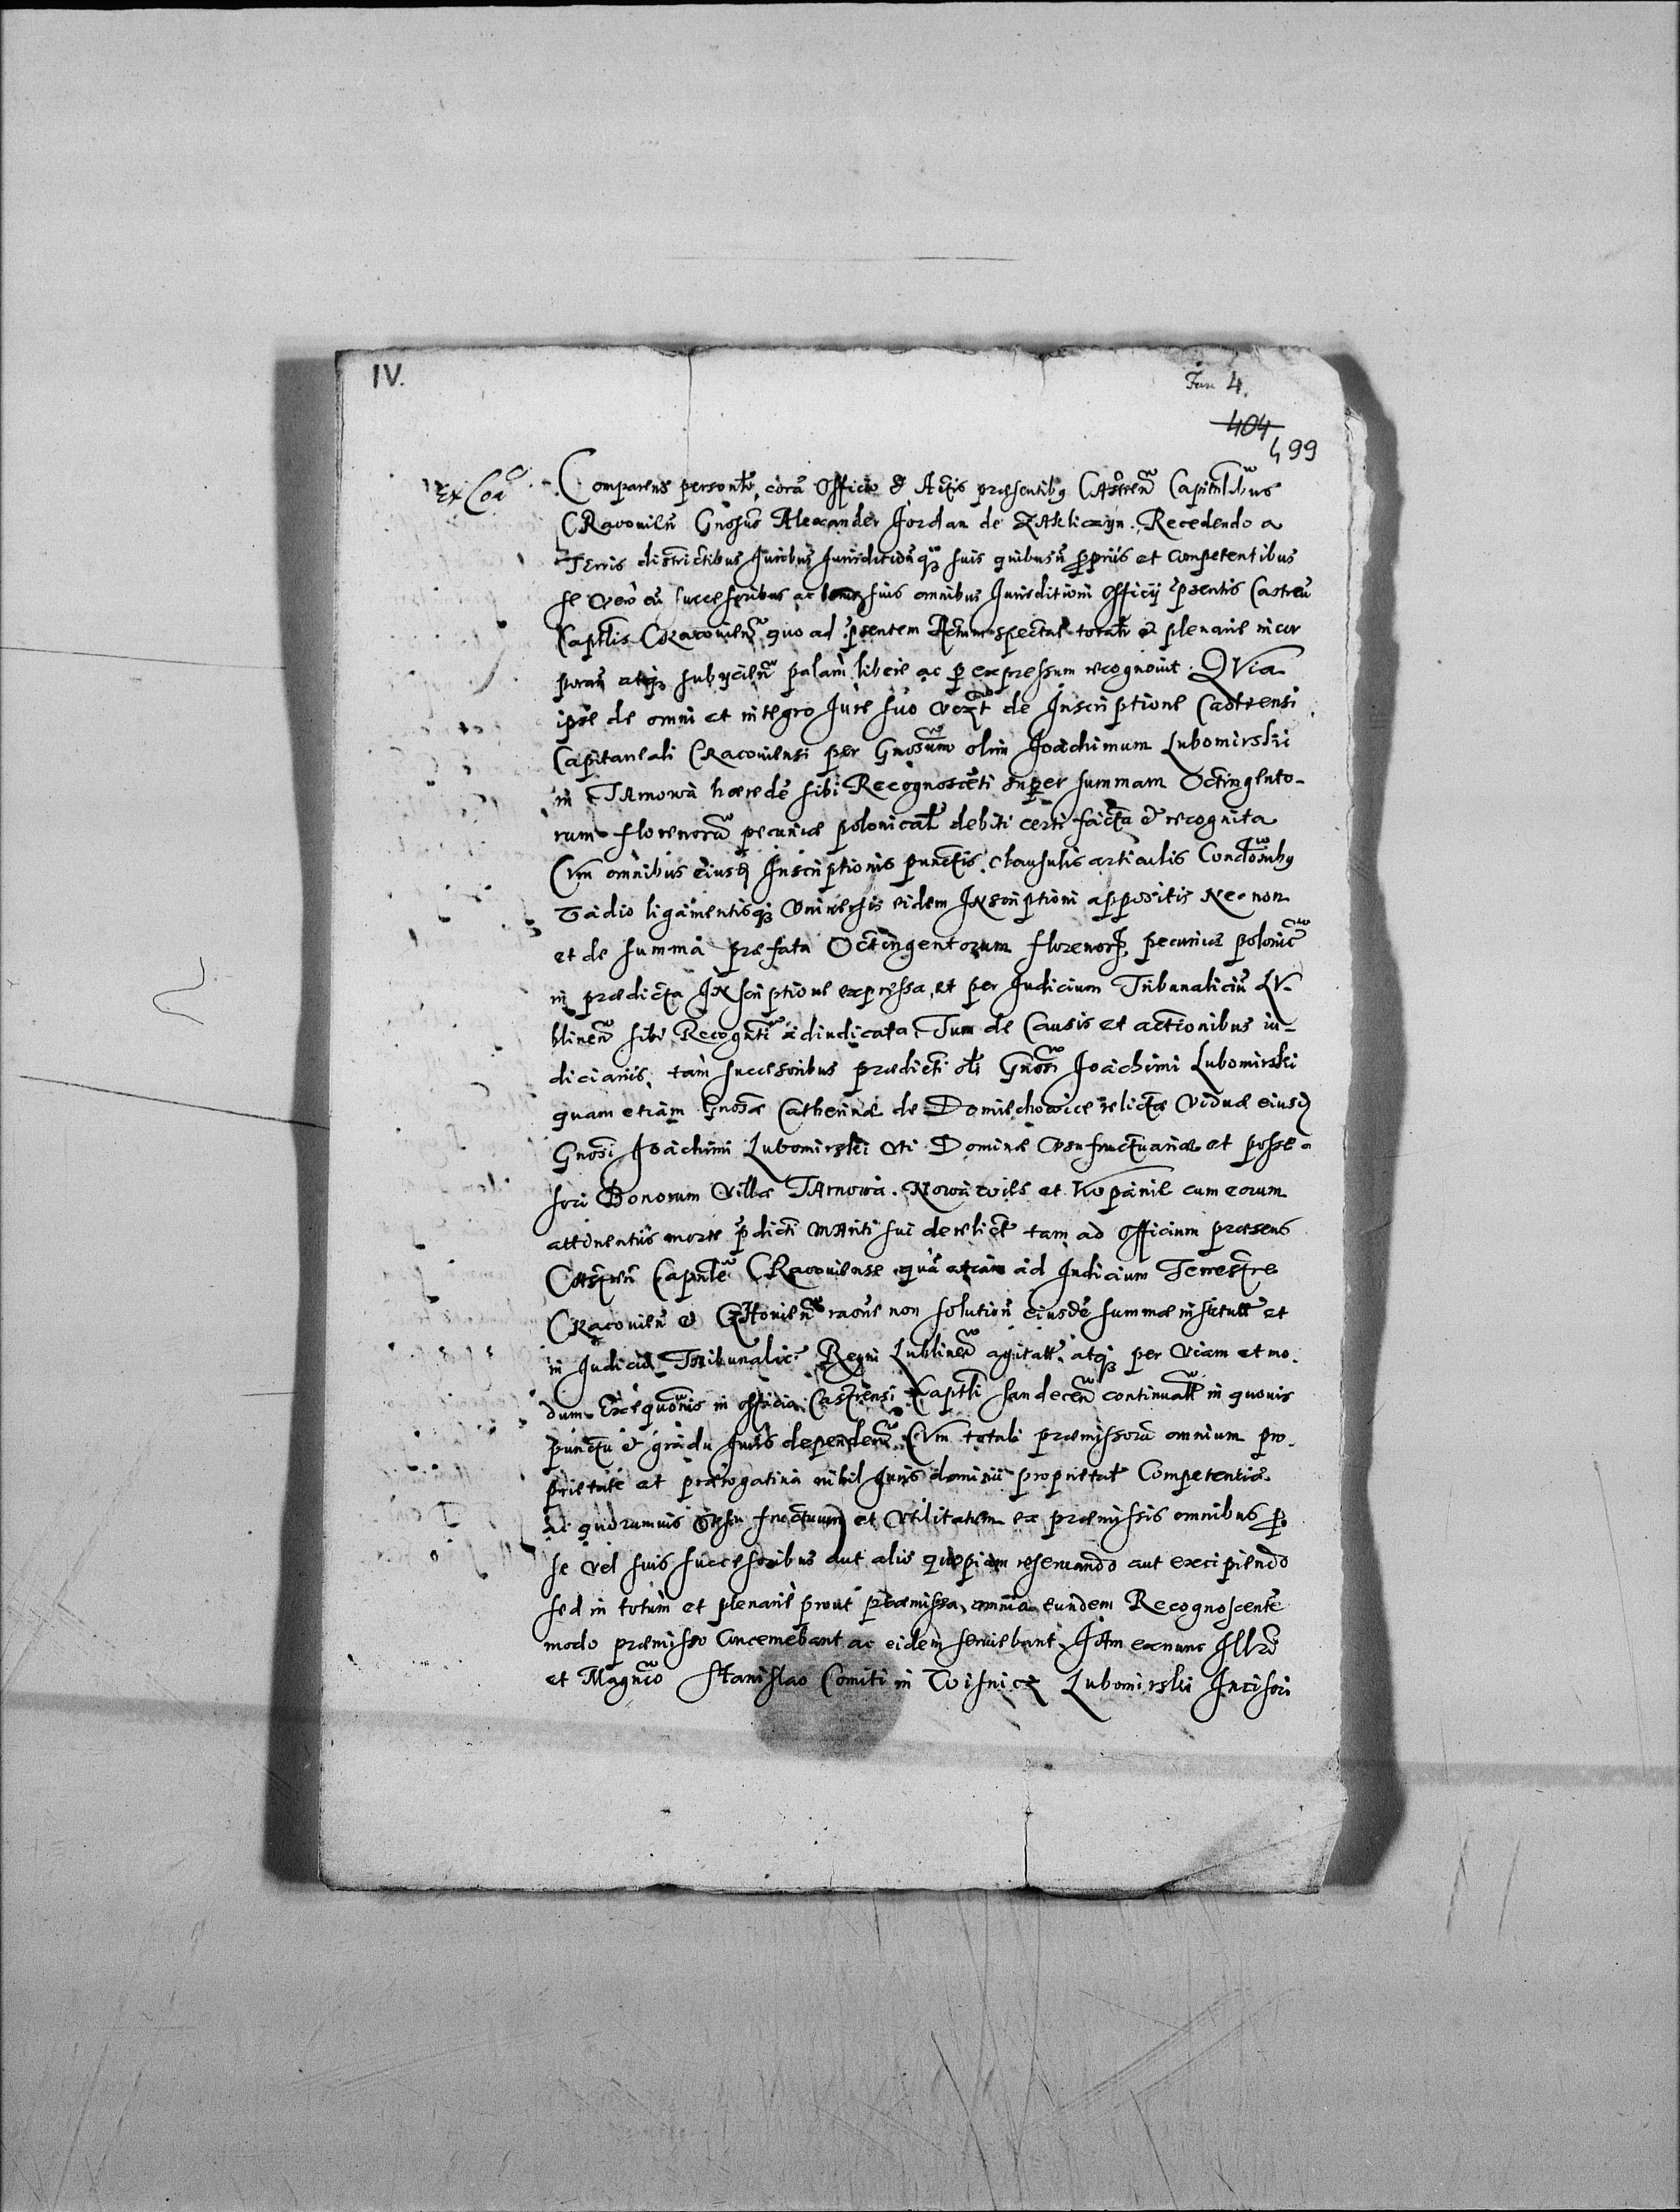 IV.
Fun 4.
404
499
Ex Coa
Comparens personłr corã Officio & Actis præsentibus CAstreñ Capitanłibus
CRacovień Gnosus Alexander Jordan de ZAkliczyn. Recedendo a
TErris districtibus Juribus Jurisditioñqz suis quibusuis pprijs et competentibus
se vero cũ successoribus ac bonis suis omnibus Jurisditioni Officij pñtis Castreñ
Capitłis CRacovień quo ad pñtem Actum spectat totalr & plenarie incor
porań atqz subycień palam libere ac p expressum recognovit. QVia
ipse de omni et integro Jure suo de Inscriptione Castrensi
Capitaneali CRacoviensi per Gnosum olim Joachimum Lubomirski
in TArnowa hæredẽ sibi Recognoscẽti super summam Octingento-
rum florenorũ pecuniæ polonicał debiti certi facta & recognita
CVm omnibus eiusd Inscriptionis punctis clausulis articulis Condõnibus
Vadio ligamentisqz vniversis eidem INscriptioni appositis Necnon
et de summa præfata Octingentorum florenor pecuniæ polonic
in prædicta INscriptione expressa, et per Judicium Tribunaliciũ LV-
blineñ sibi Recognti adiudicata. Tum de Causis et actionibus iu-
diciariis, tam successoribus prædicti oł Gnosi Joachimi Lubomirski
quam etiam Gnosæ Catherinæ de Domiechowice relictæ viduæ eiusd
Gnosi Joachimi Lubomirski vti Dominæ vsufructuariæ et posses-
sori Bonorum Villæ TArnowa. Nowawies et Kopanie cum eorum
attinentiis morte pdicti MAriti sui derelict tam ad Officium præsens
CAstreñ Capitałe CRacoviense quã etiam ad Judicium Terrestre
CRacovień & raone non solutioñ eiusdẽ summæ institutt et
in Judicio Tribunalic Regni Lublineñ agitatt. atqz per viam et mo-
dum Exequõnis in officio Castrensi Capitłi Sandeceñ continuatt in quovis
punctu & gradu Juris dependeñ. CVm totali præmissorũ omnium pro-
prietate et prærogativa nihil Juris dominii proprietat Competentiæ
ac quorumvis vsufructuum et vtilitatum ex præmissis omnibus p
se vel suis successoribus aut alio quopiam reservando aut excipiendo
sed in totum et plenarie prout præmissa omnia eundem Recognoscentẽ
modo præmisso concernebant ac eidem serviebant JAm exnunc Illri
et Magnco Stanislao Comiti in Wisnicz Lubomirski Incisori